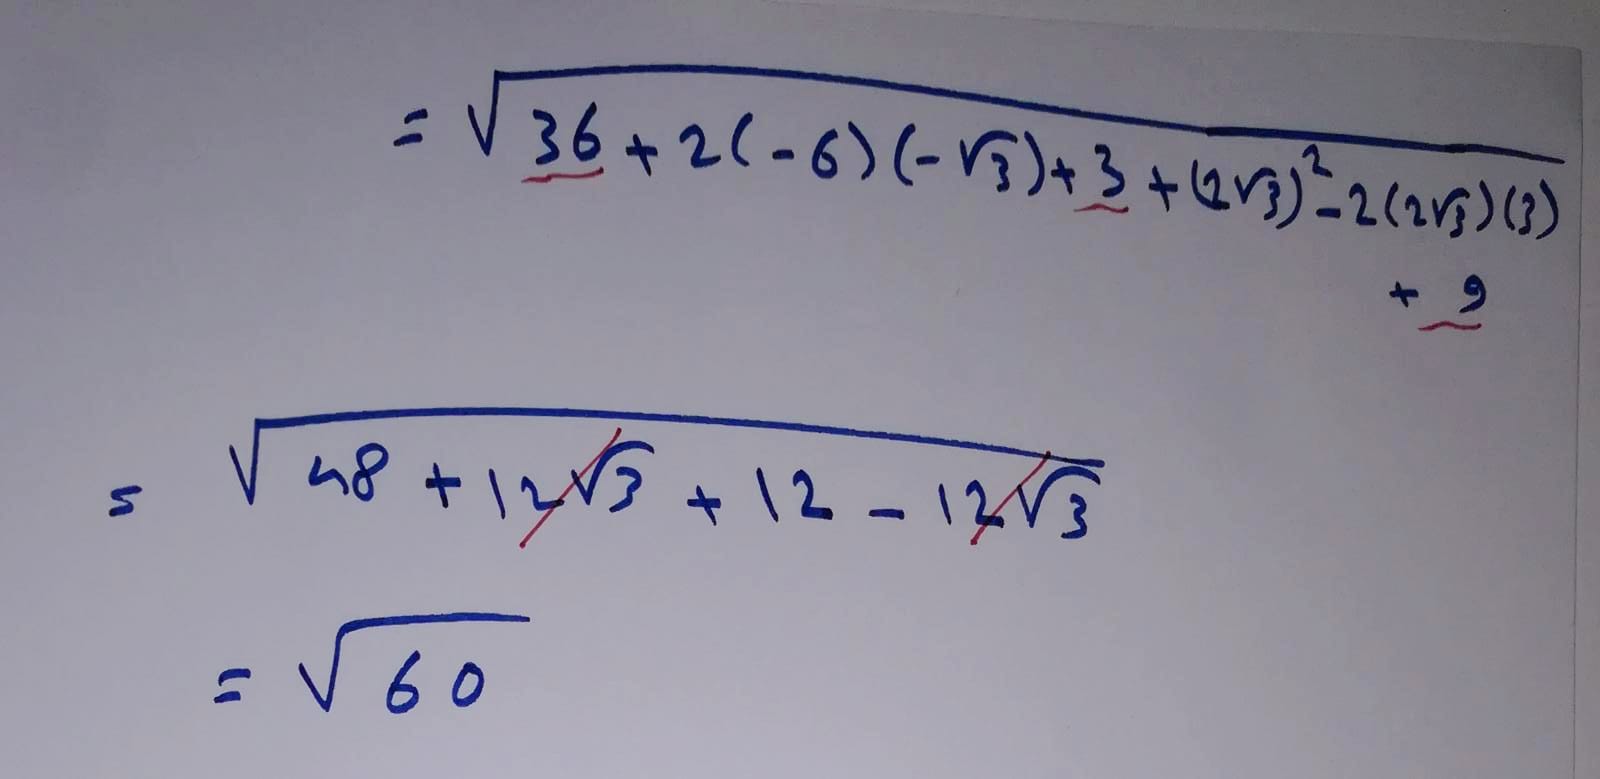 = √36 + 2(-6)(-√3) + 3 + (2√3)² - 2(2√3)(3)
+ 9
= √48 + 12√3 + 12 - 12√3
= √60